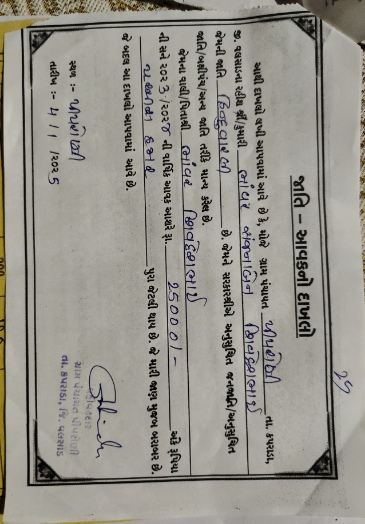 29
જાતિ - આવકનો દાખલો
આથી દાખલો લખી આપવામાં આવે છે કે, મોજે ગ્રામ પંચાયત પીપરોણી તા. કપરાડા,
જી. વલસાડના રહીશ શ્રી/કુમારી ભાંવર અંજનાબેન શિવદાસભાઈ
જેમની જાતિ હિન્દુ વારલી છે. જેમને સરકારશ્રીએ અનુસુચિત જનજાતિ/અનુસુચિત
જાતિ/બક્ષીપંચ/અન્ય જાતિ તરીકે માન્ય કરેલ છે.
જેમના વાલી/પિતાશ્રી ભાંવર શિવદાસભાઈ
ની સને ૨૦૨૩/૨૦૨૪ ની વાર્ષિક આવક આશરે રૂા. 25000/- અંકે રૂપિયા
પચ્ચીસ હજાર પુરા જેટલી થાય છે. જે મારી જાણ મુજબ બરાબર છે.
જે બદલ આ દાખલો આપવામાં આવે છે.
સ્થળ :- પીપરોણી
તારીખ :- 4/1/૨૦૨5
સરપંચ
ગ્રામ પંચાયત પીપરોણી
તા. કપરાડા, જિ. વલસાડ